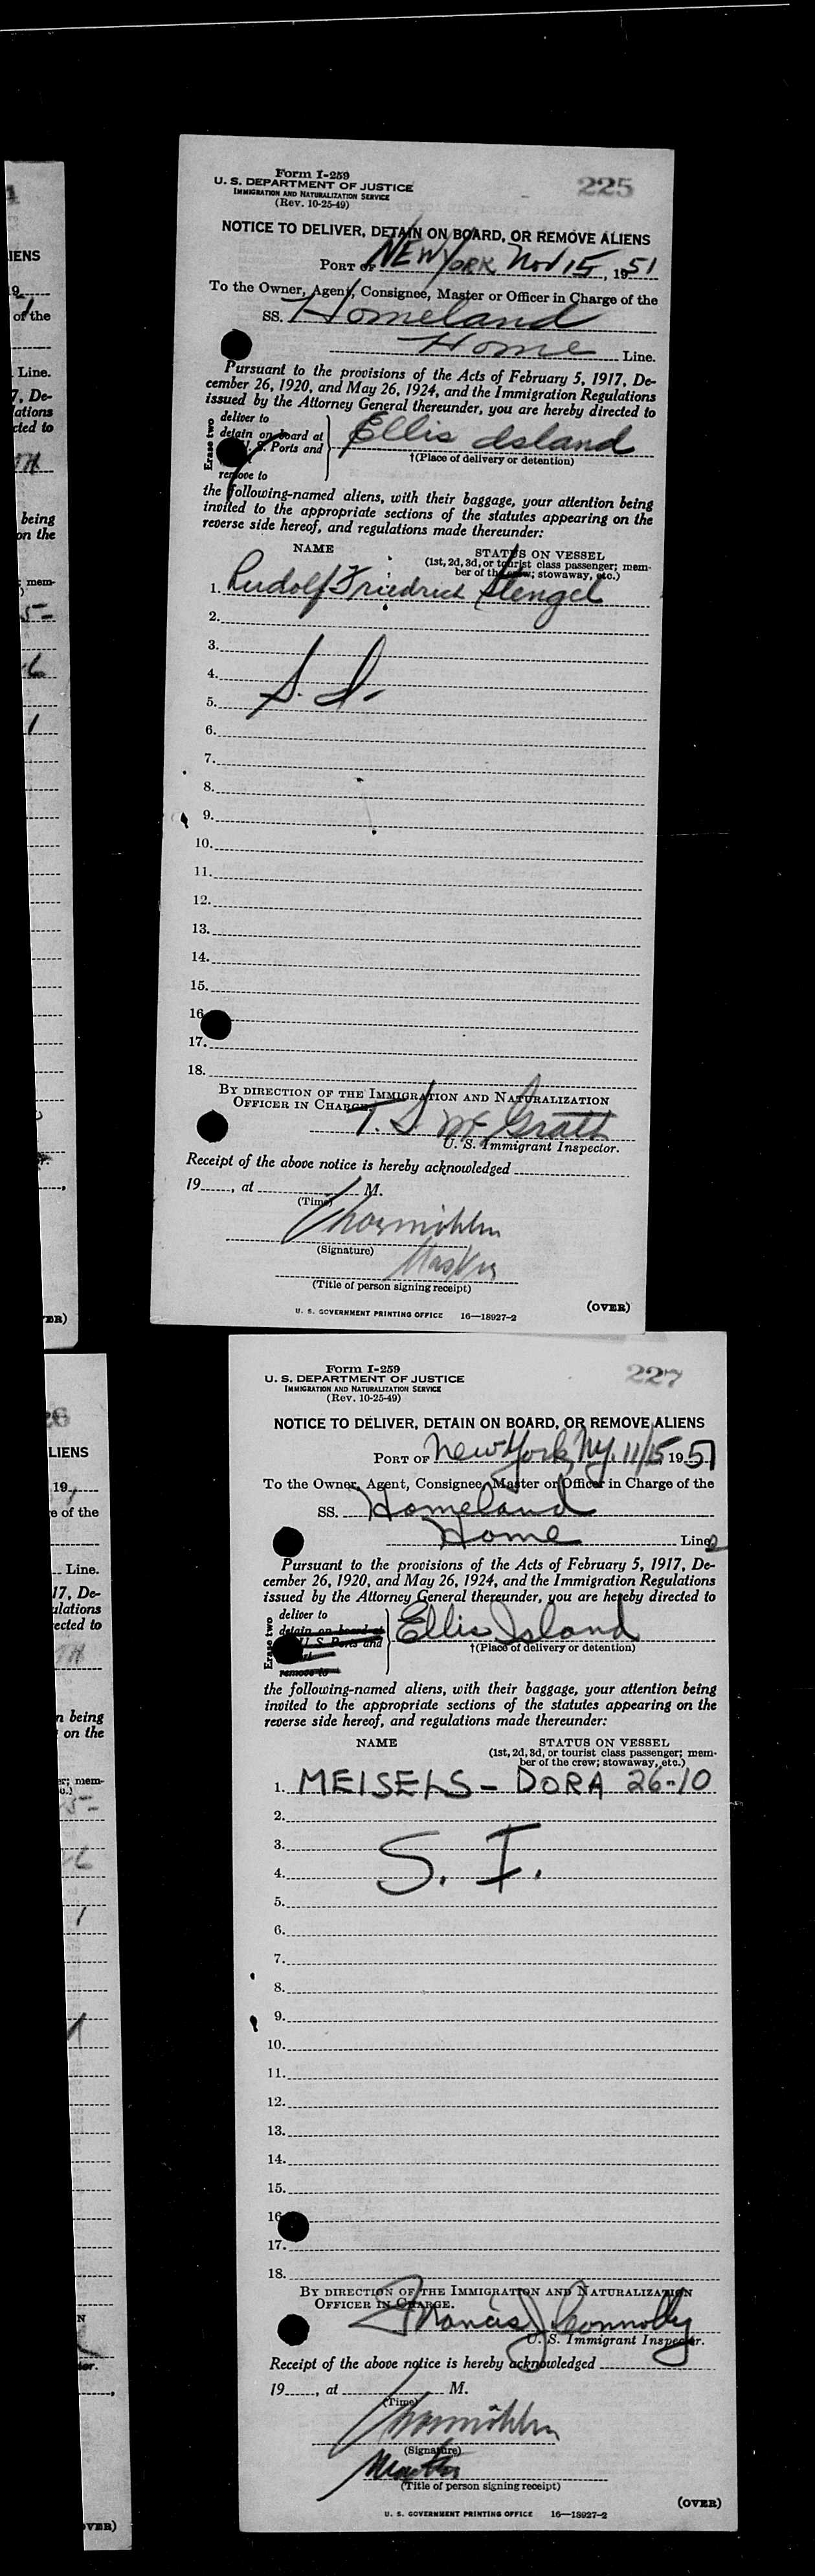 Form I-259
U. S. DEPARTMENT OF JUSTICE
IMMIGRATION AND NATURALIZATION SERVICE
(Rev. 10-25-49)
225
NOTICE TO DELIVER, DETAIN ON BOARD, OR REMOVE ALIENS
PORT OF NEW YORK Nov 15, 1951
To the Owner, Agent, Consignee, Master or Officer in Charge of the
SS. Homeland
Home Line.
Pursuant to the provisions of the Acts of February 5, 1917, De-
cember 26, 1920, and May 26, 1924, and the Immigration Regulations
issued by the Attorney General thereunder, you are hereby directed to
Erase two
deliver to
detain on board at
U. S. Ports and
remove to
Ellis Island
†(Place of delivery or detention)
the following-named aliens, with their baggage, your attention being
invited to the appropriate sections of the statutes appearing on the
reverse side hereof, and regulations made thereunder:
NAME STATUS ON VESSEL
(1st, 2d, 3d, or tourist class passenger; mem-
ber of the crew; stowaway, etc.)
1. Rudolf Friedrich Stengel
2.
3.
4.
S. I.
5.
6.
7.
8.
9.
10.
11.
12.
13.
14.
15.
16
17.
18.
BY DIRECTION OF THE IMMIGRATION AND NATURALIZATION
OFFICER IN CHARGE.
T. S. McGrath
U. S. Immigrant Inspector.
Receipt of the above notice is hereby acknowledged
19 , at M.
(Time)
(Signature)
Master
(Title of person signing receipt)
U. S. GOVERNMENT PRINTING OFFICE 16—18927-2
(OVER)
Form I-259
U. S. DEPARTMENT OF JUSTICE
IMMIGRATION AND NATURALIZATION SERVICE
(Rev. 10-25-49)
227
NOTICE TO DELIVER, DETAIN ON BOARD, OR REMOVE ALIENS
PORT OF New York, NY. 11/15 1951
To the Owner, Agent, Consignee, Master or Officer in Charge of the
SS. Homeland
Home Line
Pursuant to the provisions of the Acts of February 5, 1917, De-
cember 26, 1920, and May 26, 1924, and the Immigration Regulations
issued by the Attorney General thereunder, you are hereby directed to
Erase two
deliver to
detain on board at
U. S. Ports and
remove to
Ellis Island
†(Place of delivery or detention)
the following-named aliens, with their baggage, your attention being
invited to the appropriate sections of the statutes appearing on the
reverse side hereof, and regulations made thereunder:
NAME STATUS ON VESSEL
(1st, 2d, 3d, or tourist class passenger; mem-
ber of the crew; stowaway, etc.)
1. MEISELS - DORA 26-10
2.
3.
S. I.
4.
5.
6.
7.
8.
9.
10.
11.
12.
13.
14.
15.
16
17.
18.
BY DIRECTION OF THE IMMIGRATION AND NATURALIZATION
OFFICER IN CHARGE.
Francis J Connolly
U. S. Immigrant Inspector.
Receipt of the above notice is hereby acknowledged
19 , at M.
(Time)
(Signature)
Master
(Title of person signing receipt)
U. S. GOVERNMENT PRINTING OFFICE 16—18927-2
(OVER)